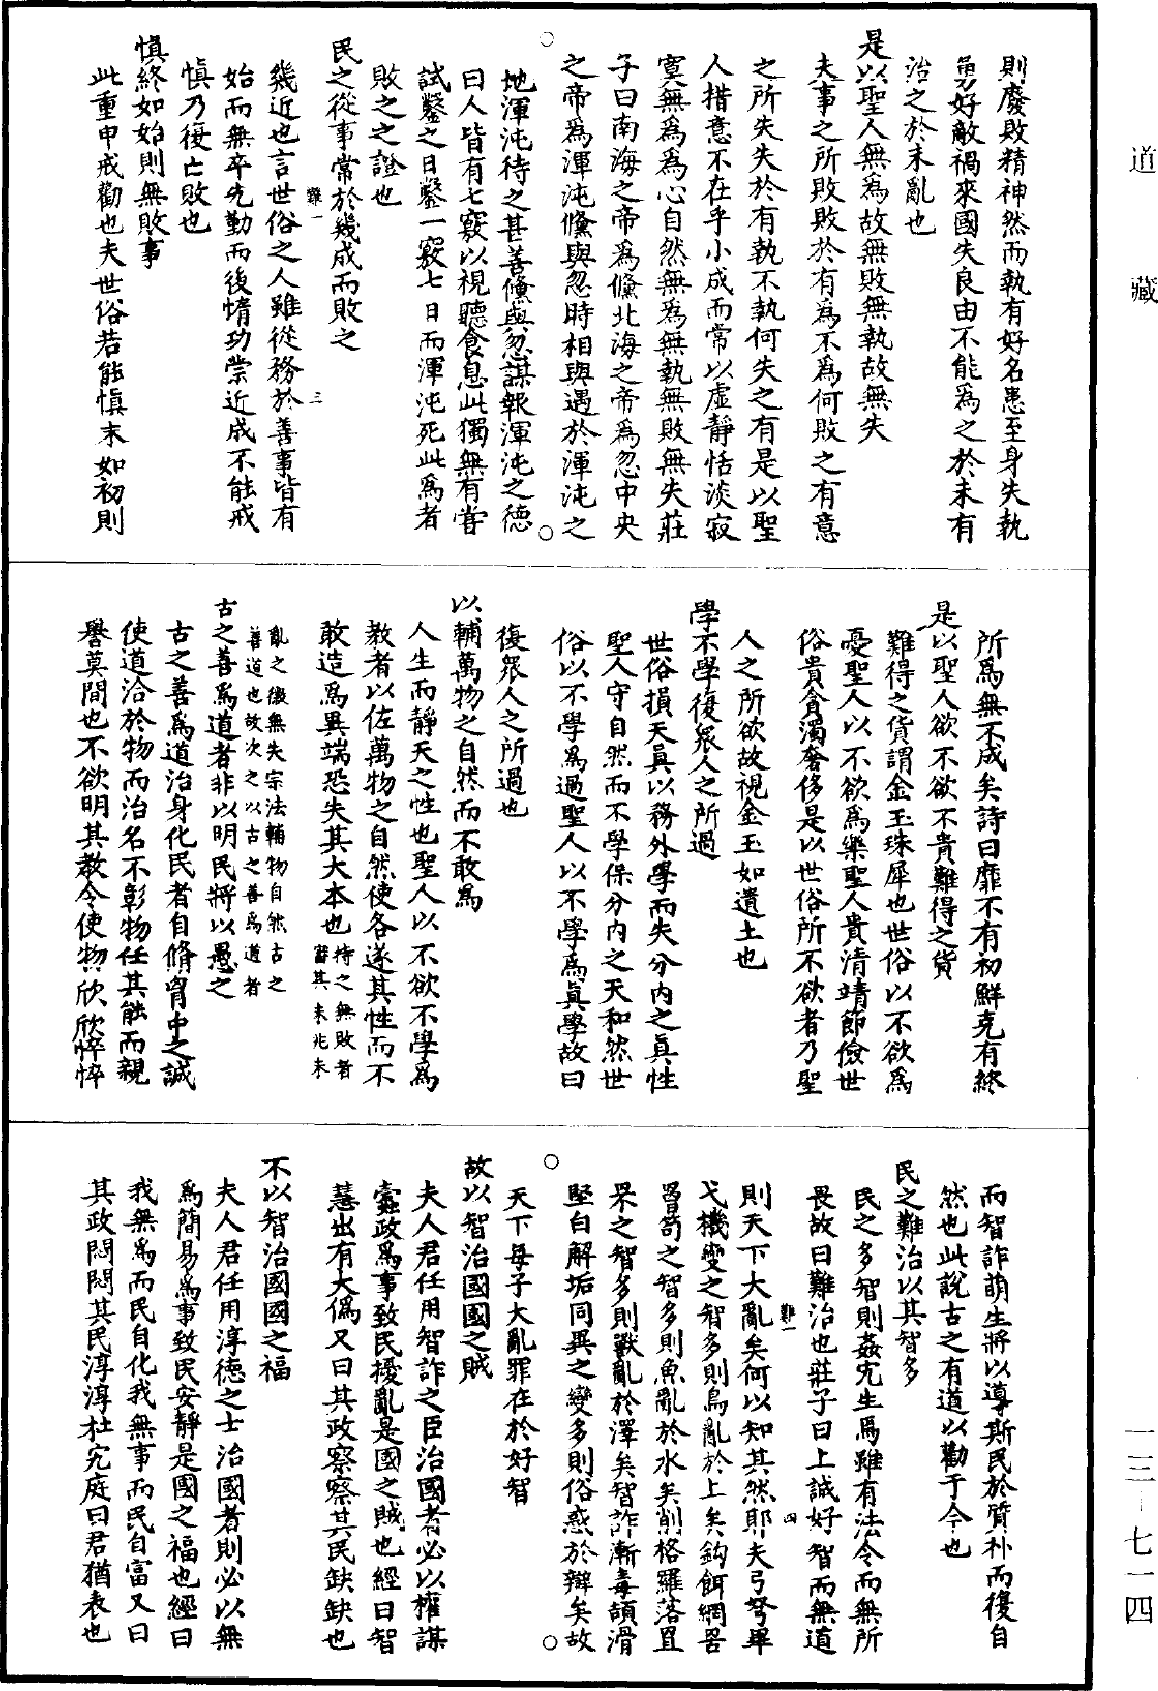 道藏
一三—七一四
則廢敗精神然而執有好名患至身失執
勇好敵禍來國失良由不能爲之於未有
治之於未亂也
是以聖人無爲故無敗無執故無失
夫事之所敗敗於有爲不爲何敗之有意
之所失失於有執不執何失之有是以聖
人措意不在乎小成而常以虛靜恬淡寂
寞無爲爲心自然無爲無執無敗無失莊
子曰南海之帝爲儵北海之帝爲忽中央
之帝爲渾沌儵與忽時相與遇於渾沌之
地渾沌待之甚善儵與忽謀報渾沌之德
曰人皆有七竅以視聽食息此獨無有嘗
試鑿之日鑿一竅七日而渾沌死此爲者
敗之之證也
民之從事常於幾成而敗之
難一
三
幾近也言世俗之人雖從務於善事皆有
始而無卒先勤而後惰功崇近成不能戒
慎乃復亡敗也
慎終如始則無敗事
此重申戒勸也夫世俗若能慎末如初則
所爲無不成矣詩曰靡不有初鮮克有終
是以聖人欲不欲不貴難得之貨
難得之貨謂金玉珠犀也世俗以不欲爲
憂聖人以不欲爲樂聖人貴清靖節儉世
俗貴貪濁奢侈是以世俗所不欲者乃聖
人之所欲故視金玉如遺土也
學不學復衆人之所過
世俗損天眞以務外學而失分內之眞性
聖人守自然而不學保分內之天和然世
俗以不學爲過聖人以不學爲眞學故曰
復衆人之所過也
以輔萬物之自然而不敢爲
人生而靜天之性也聖人以不欲不學爲
教者以佐萬物之自然使各遂其性而不
敢造爲異端恐失其大本也
持之無敗者
審其未兆未
亂之徵無失宗法輔物自然古之
善道也故次之以古之善爲道者
古之善爲道者非以明民將以愚之
古之善爲道治身化民者自脩胷中之誠
使道洽於物而治名不彰物任其能而親
譽莫間也不欲明其教令使物欣欣悴悴
而智詐萌生將以導斯民於質朴而復自
然也此說古之有道以勸于今也
民之難治以其智多
民之多智則姦宄生焉雖有法令而無所
畏故曰難治也莊子曰上誠好智而無道
難一
四
則天下大亂矣何以知其然耶夫弓弩畢
弋機變之智多則鳥亂於上矣鈎餌網罟
罾笱之智多則魚亂於水矣削格羅落罝
罘之智多則獸亂於澤矣智詐漸毒頡滑
堅白解垢同異之變多則俗惑於辯矣故
天下每子大亂罪在於好智
故以智治國國之賊
夫人君任用智詐之臣治國者必以權謀
蠹政爲事致民擾亂是國之賊也經曰智
慧出有大僞又曰其政察察其民缺缺也
不以智治國國之福
夫人君任用淳德之士治國者則必以無
爲簡易爲事致民安靜是國之福也經曰
我無爲而民自化我無事而民自富又曰
其政悶悶其民淳淳杜宄庭曰君猶表也